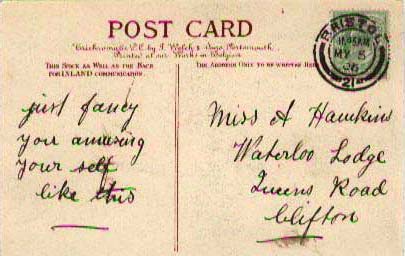 POST CARD
"Crichromatic" P.C. by J. Welch & Sons, Portsmouth.
Printed at our Works in Belgium
THIS SPACE AS WELL AS THE BACK
FOR INLAND COMMUNICATION.
THE ADDRESS ONLY TO BE WRITTEN HERE
BRISTOL
MY 5
21
just fancy
you amusing
your self
like this
Miss A Hawkins
Waterloo Lodge
Queens Road
Clifton